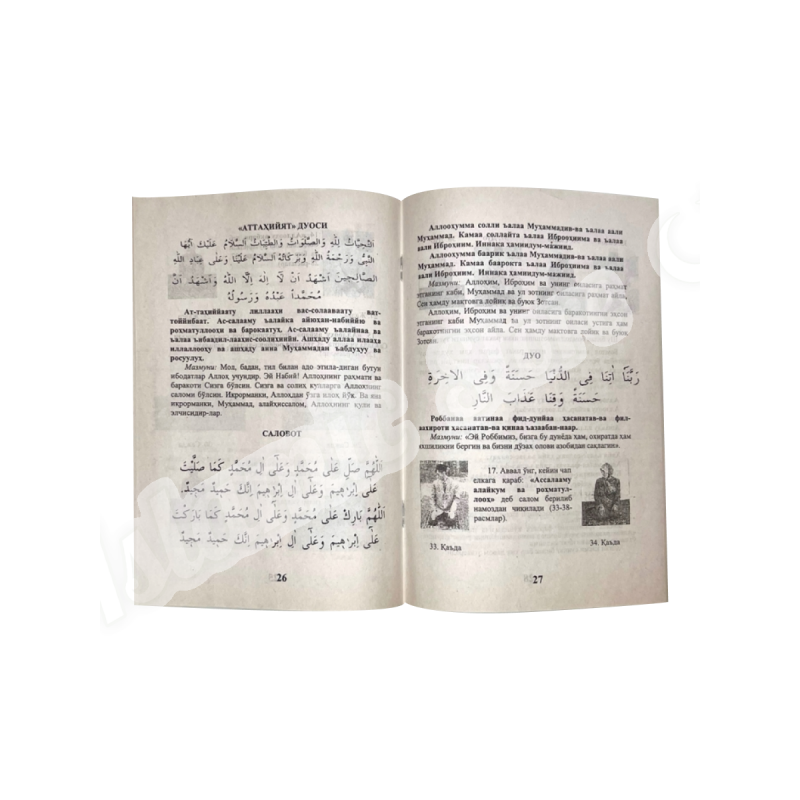 «АТТАҲИЙЯТ» ДУОСИ
اَلتَّحِيَّاتُ لِلّٰهِ وَالصَّلَوَاتُ وَالطَّيِّبَاتُ اَلسَّلَامُ عَلَيْكَ اَيُّهَا
النَّبِىُّ وَرَحْمَةُ اللّٰهِ وَبَرَكَاتُهُ اَلسَّلَامُ عَلَيْنَا وَعَلَى عِبَادِ اللّٰهِ
الصَّالِحِينَ اَشْهَدُ اَنْ لَا اِلٰهَ اِلَّا اللّٰهُ وَاَشْهَدُ اَنَّ
مُحَمَّداً عَبْدُهُ وَرَسُولُهُ
Ат-таҳиййату лиллааҳи вас-солаваату ват-
тоййибаат. Ас-салааму ъалайка айюҳан-набиййю ва
роҳматуллооҳи ва барокаатуҳ. Ас-салааму ъалайнаа ва
ъалаа ъибаадил-лааҳис-соолиҳийн. Ашҳаду аллаа илааҳа
иллаллооҳу ва ашҳаду анна Муҳаммадан ъабдуҳуу ва
росуулуҳ.
Мазмуни: Мол, бадан, тил билан адо этила-диган бутун
ибодатлар Аллоҳ учундир. Эй Набий! Аллоҳнинг раҳмати ва
баракоти Сизга бўлсин. Сизга ва солиҳ қулларга Аллоҳнинг
саломи бўлсин. Иқрорманки, Аллоҳдан ўзга илоҳ йўқ. Ва яна
иқрорманки, Муҳаммад, алайҳиссалом, Аллоҳнинг қули ва
элчисидир-лар.
САЛОВОТ
اَللّٰهُمَّ صَلِّ عَلَى مُحَمَّدٍ وَعَلَى اٰلِ مُحَمَّدٍ كَمَا صَلَّيْتَ
عَلَى اِبْرٰهِيمَ وَعَلَى اٰلِ اِبْرٰهِيمَ اِنَّكَ حَمِيدٌ مَجِيدٌ.
اَللّٰهُمَّ بَارِكْ عَلَى مُحَمَّدٍ وَعَلَى اٰلِ مُحَمَّدٍ كَمَا بَارَكْتَ
عَلَى اِبْرٰهِيمَ وَعَلَى اٰلِ اِبْرٰهِيمَ اِنَّكَ حَمِيدٌ مَجِيدٌ
26
Аллооҳумма солли ъалаа Муҳаммадив-ва ъалаа аали
Муҳаммад. Камаа соллайта ъалаа Иброоҳима ва ъалаа
аали Иброоҳим. Иннака ҳамидум-мажид.
Аллооҳумма баарик ъалаа Муҳаммадив-ва ъалаа аали
Муҳаммад. Камаа баарокта ъалаа Иброоҳима ва ъалаа
аали Иброоҳим. Иннака ҳамидум-мажид.
Мазмуни: Аллоҳим, Иброҳим ва унинг оиласига раҳмат
этганинг каби, Муҳаммад ва ул зотнинг оиласига раҳмат айла.
Сен ҳамду мақтовга лойиқ ва буюк Зотсан.
Аллоҳим, Иброҳим ва унинг оиласига баракотингни эҳсон
этганинг каби Муҳаммад ва ул зотнинг оиласи устига ҳам
баракотингни эҳсон айла. Сен ҳамду мақтовга лойиқ ва буюк
Зотсан.
ДУО
رَبَّنَا اٰتِنَا فِى الدُّنْيَا حَسَنَةً وَفِى الْاٰخِرَةِ
حَسَنَةً وَقِنَا عَذَابَ النَّارِ
Роббанаа аатинаа фид-дунйаа ҳасанатав-ва фил-
аахироти ҳасанатав-ва қинаа ъазаабан-наар.
Мазмуни: «Эй Роббимиз, бизга бу дунёда ҳам, охиратда ҳам
яхшиликни бергин ва бизни дўзах олови азобидан сақлагин».
17. Аввал ўнг, кейин чап
елкага қараб: «Ассалааму
алайкум ва роҳматул-
лооҳ» деб салом берилиб
намоздан чиқилади (33-38-
расмлар).
33. Қаъда
34. Қаъда
27